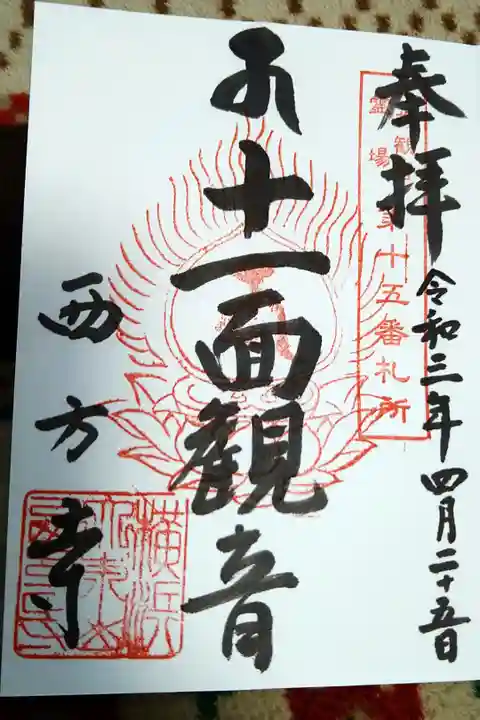 奉拝
令和三年四月二十五日
観
霊場
十五番札所
十一面観音
西方寺
横浜